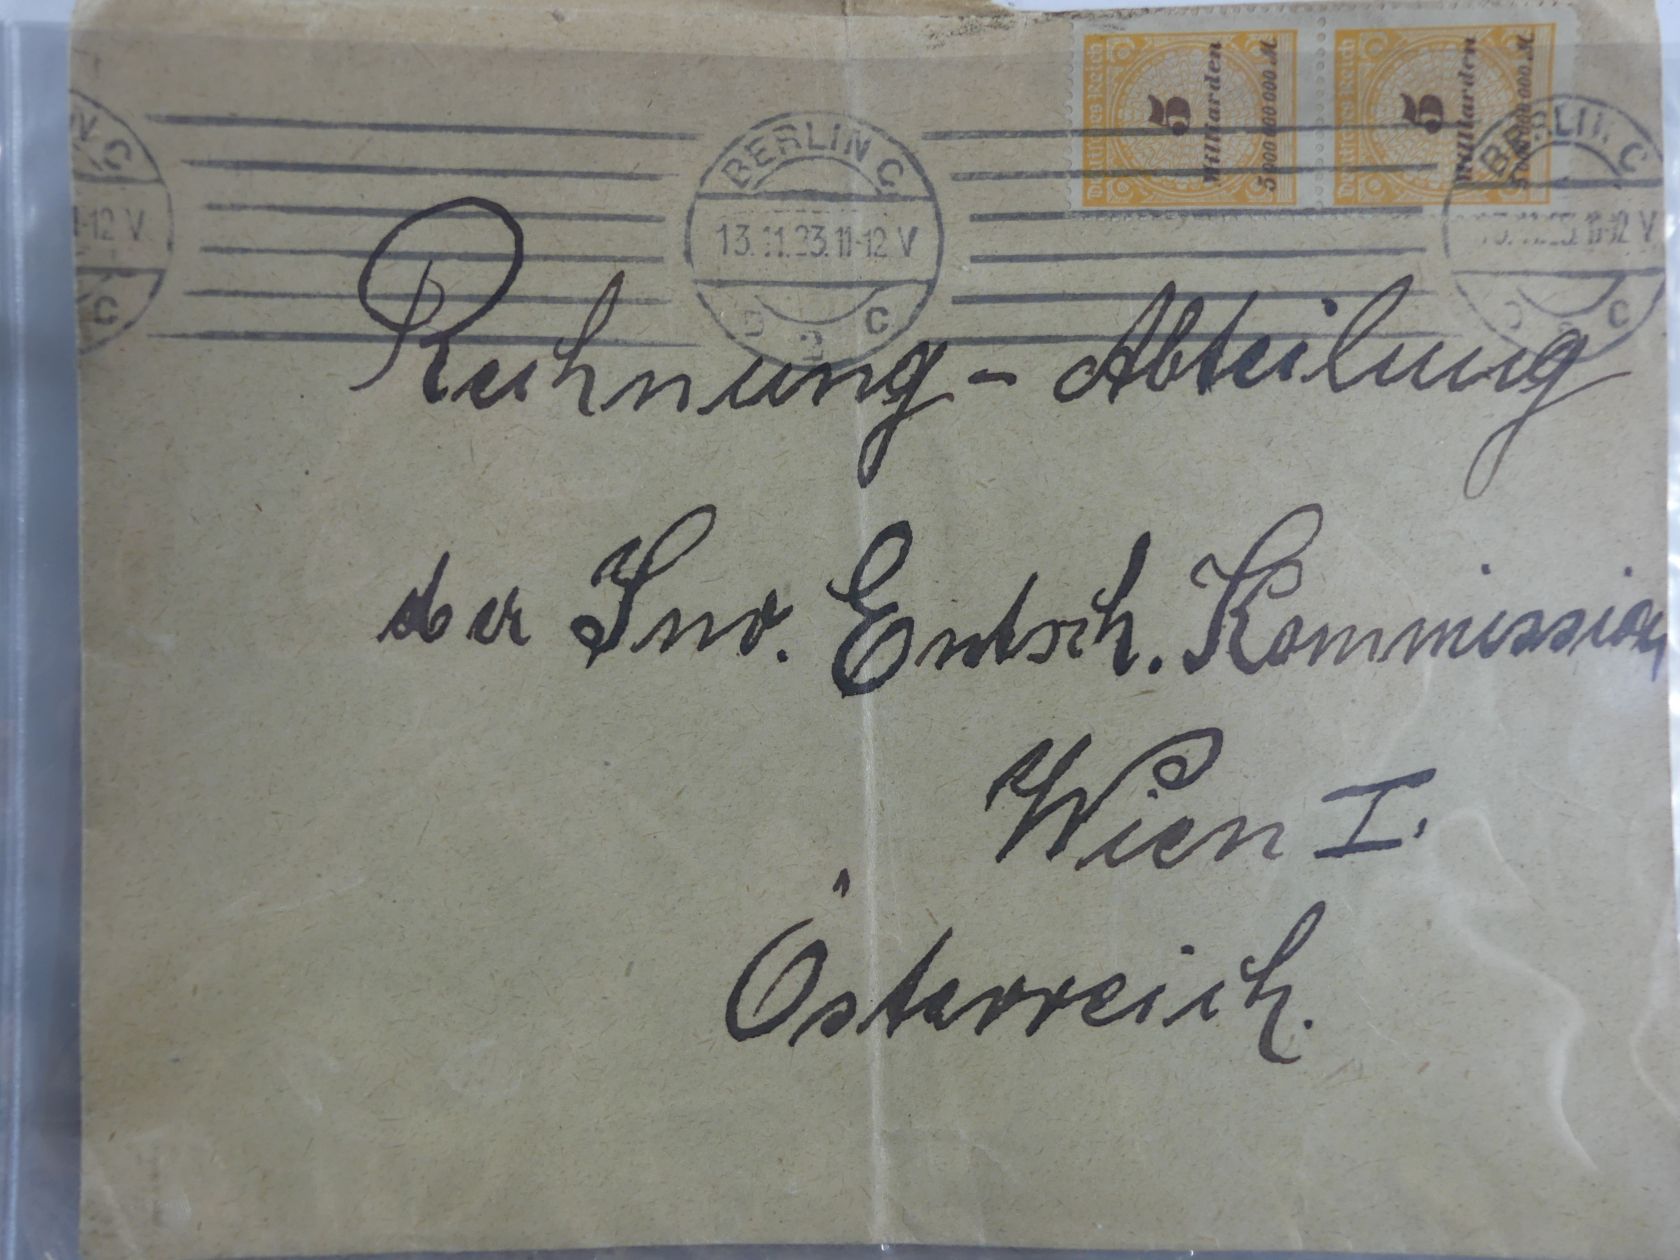 BERLIN C
13.11.23.11-12 V
C
N C
1-12 V
C
BERLIN C
11-12 V
C
Deutsches Reich
5
Milliarden
5 000 000 000 M
Deutsches Reich
5
Milliarden
5 000 000 000 M
Rechnung - Abteilung
der Inv. Entsch. Kommission
Wien I.
Österreich.